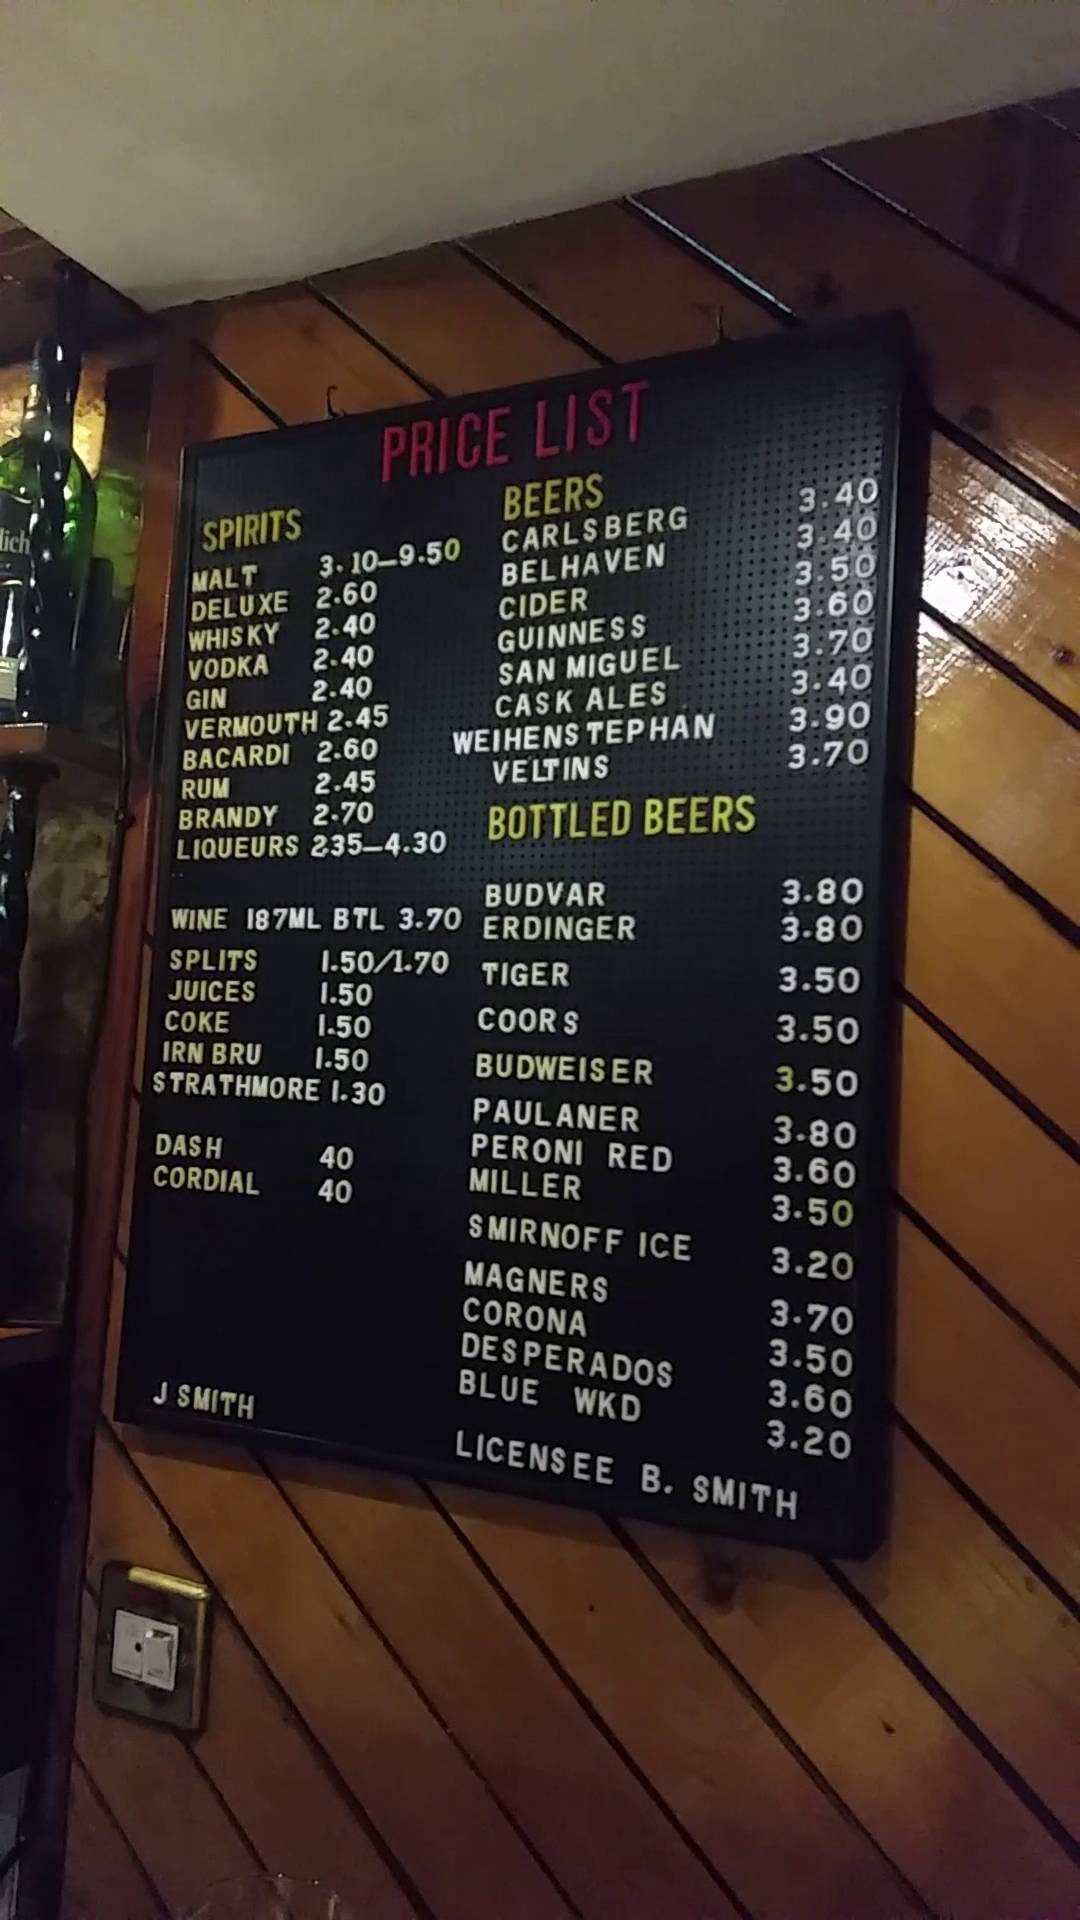 PRICE LIST
SPIRITS
MALT 3.10–9.50
DELUXE 2.60
WHISKY 2.40
VODKA 2.40
GIN 2.40
VERMOUTH 2.45
BACARDI 2.60
RUM 2.45
BRANDY 2.70
LIQUEURS 235–4.30
WINE 187ML BTL 3.70
SPLITS 1.50/1.70
JUICES 1.50
COKE 1.50
IRN BRU 1.50
STRATHMORE 1.30
DASH 40
CORDIAL 40
J SMITH
BEERS
CARLSBERG 3.40
BELHAVEN 3.40
CIDER 3.50
GUINNESS 3.60
SAN MIGUEL 3.70
CASK ALES 3.40
WEIHENSTEPHAN 3.90
VELTINS 3.70
BOTTLED BEERS
BUDVAR 3.80
ERDINGER 3.80
TIGER 3.50
COORS 3.50
BUDWEISER 3.50
PAULANER 3.80
PERONI RED 3.60
MILLER 3.50
SMIRNOFF ICE 3.20
MAGNERS 3.70
CORONA 3.50
DESPERADOS 3.60
BLUE WKD 3.20
LICENSEE B. SMITH